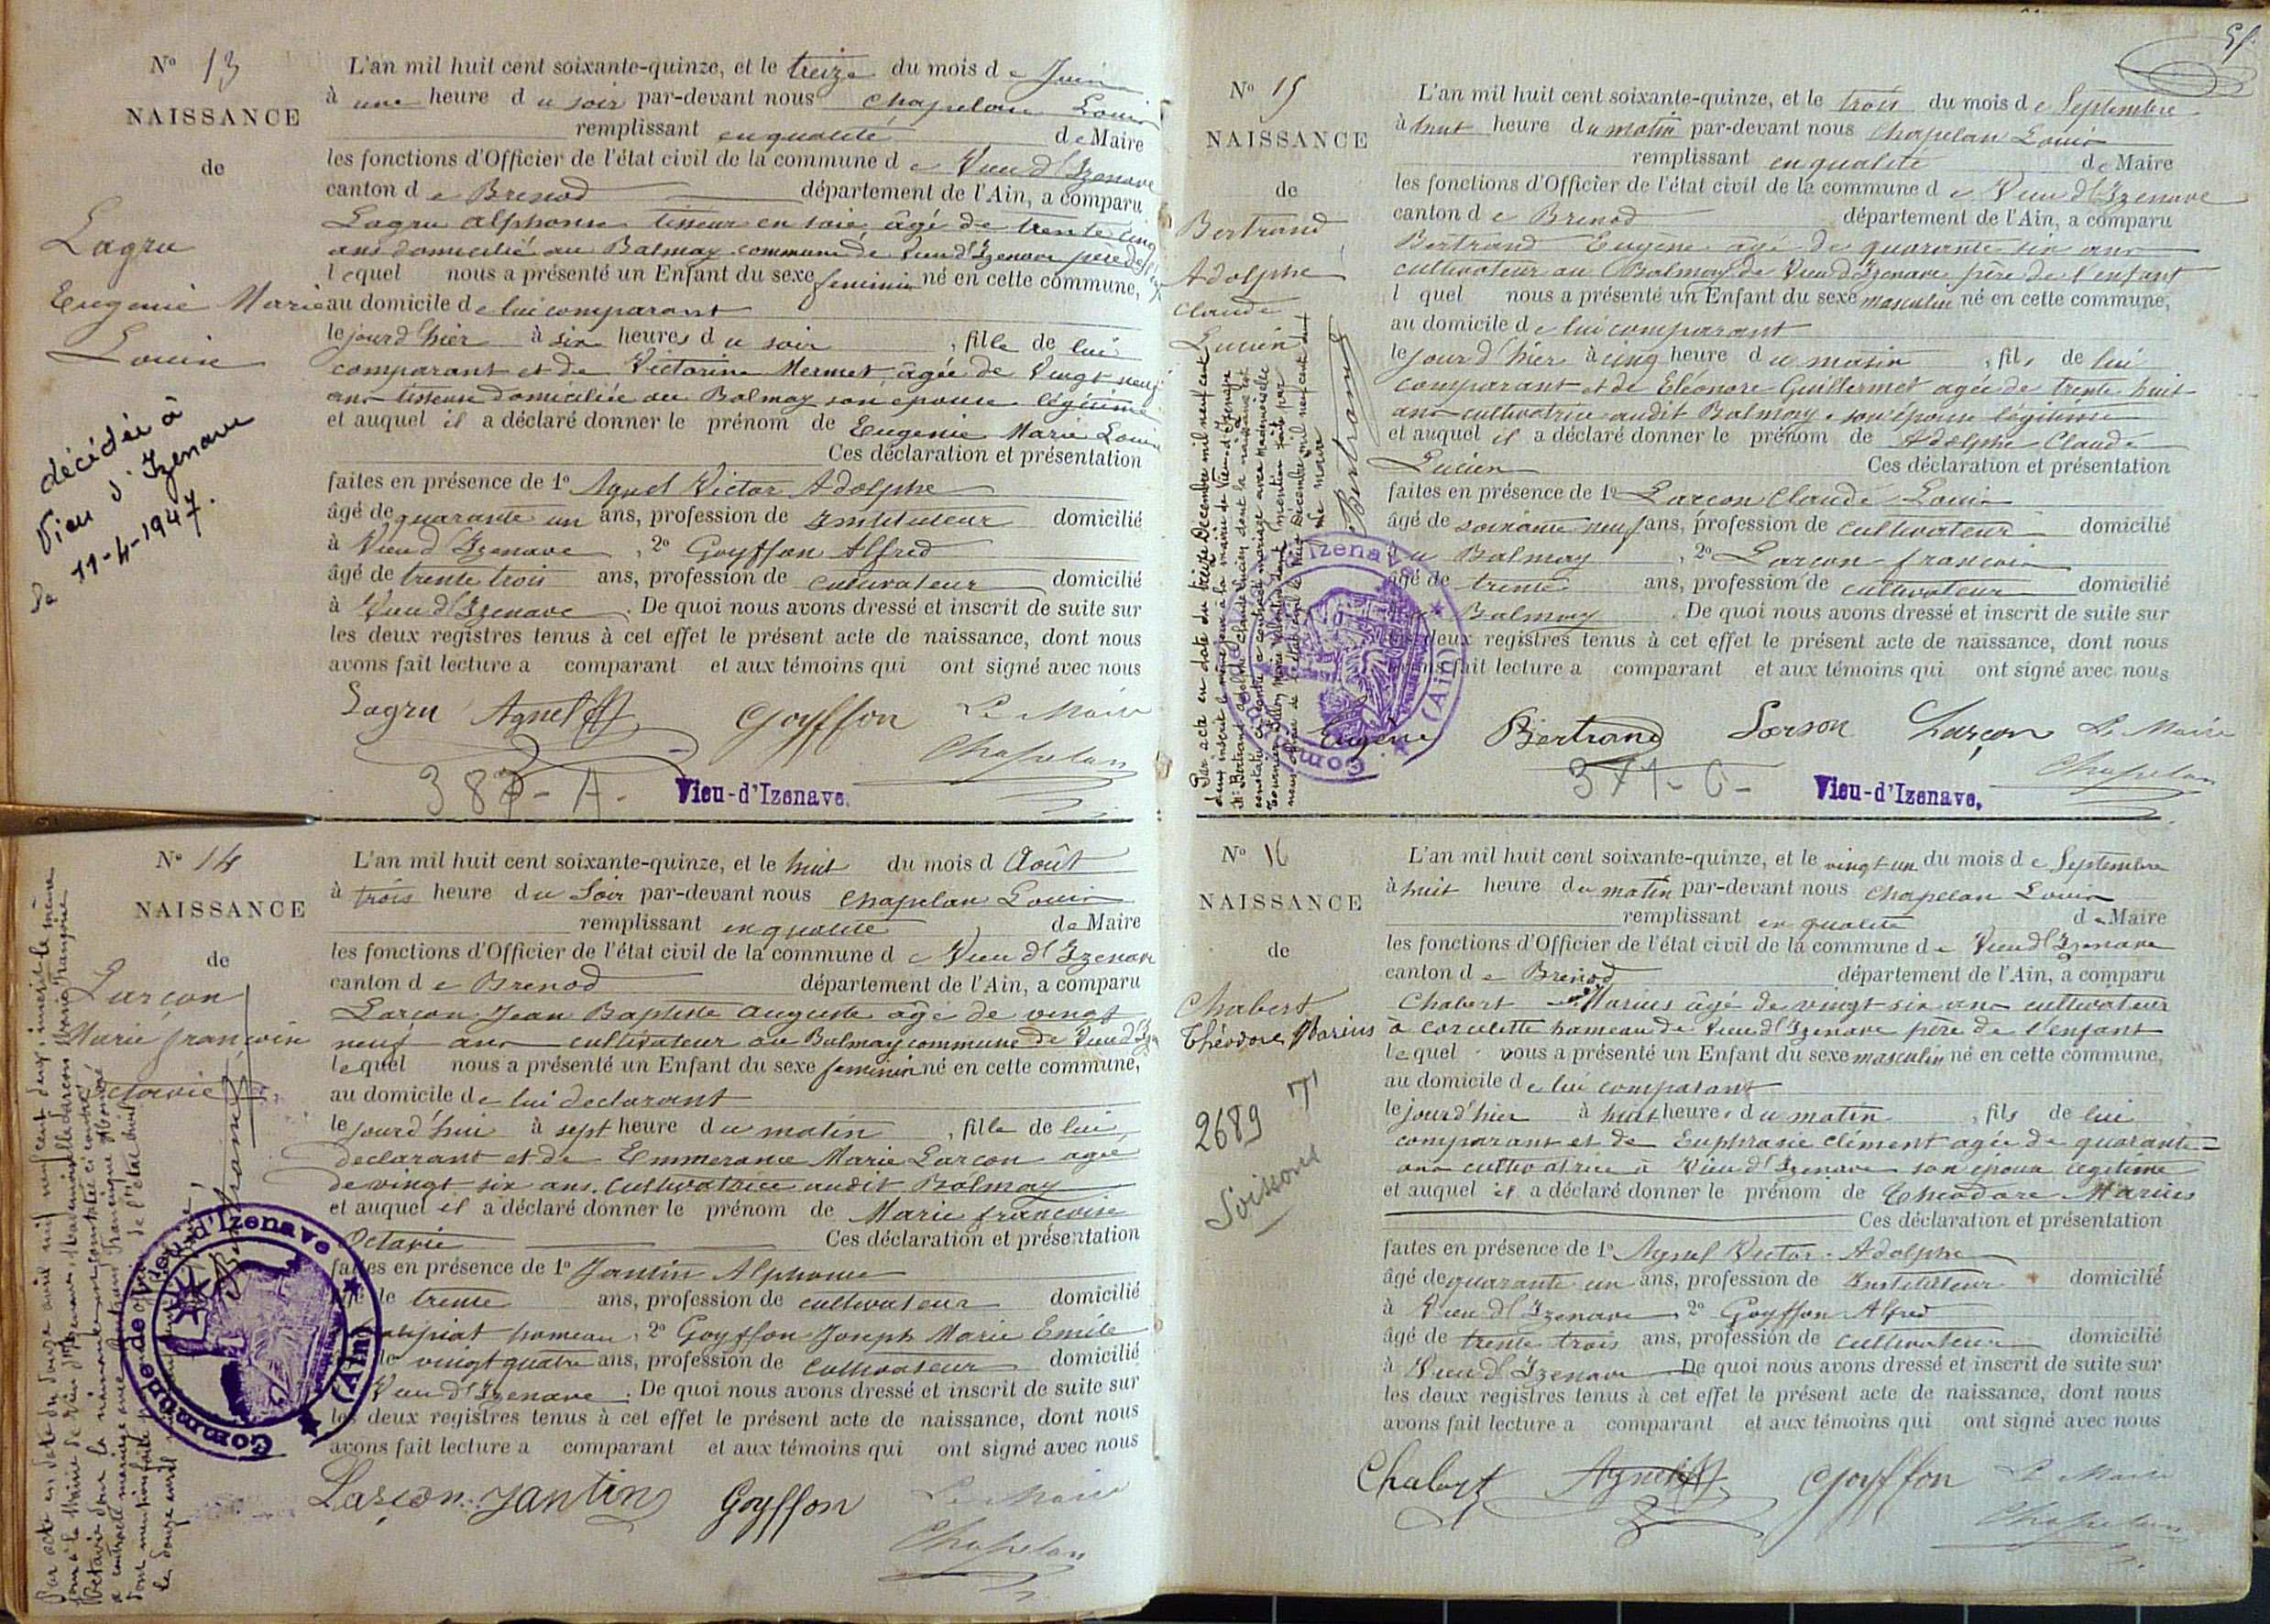 Nº 13
NAISSANCE
de
Lagru
Eugenie Marie
Louise
décédée à
Vieu d'Izenave
le 11-4-1947.
L'an mil huit cent soixante-quinze, et le treize du mois de Juin
à une heure du soir par-devant nous Chapelan Louis
remplissant en qualité de Maire
les fonctions d'Officier de l'état civil de la commune de Vieu d'Izenave
canton de Brenod département de l'Ain, a comparu
Lagru alphonse tisseur en soie, âgé de trente cinq
ans domicilié au Balmay commune de Vieu d'Izenave père de
lequel nous a présenté un Enfant du sexe feminin né en cette commune,
au domicile de lui comparant
le jourd'hier à six heures du soir, fille de lui
comparant et de Victorine Mermet, âgée de Vingt neuf
ans tisseuse domiciliée au Balmay son epouse légitime
et auquel il a déclaré donner le prénom de Eugenie Marie Louise
Ces déclaration et présentation
faites en présence de 1º Agnel Victor Adolphe
âgé de quarante un ans, profession de Instituteur domicilié
à Vieu d'Izenave, 2º Goyffon Alfred
âgé de trente trois ans, profession de cultivateur domicilié
à Vieu d'Izenave. De quoi nous avons dressé et inscrit de suite sur
les deux registres tenus à cet effet le présent acte de naissance, dont nous
avons fait lecture a comparant et aux témoins qui ont signé avec nous
Lagru Agnel Goyffon Le Maire
Chapelan
387-A- Vieu-d'Izenave.
Nº 14
NAISSANCE
de
Larçon
Marie françoise
Octavie
Par acte en date du douze avril mil neuf cent deux, inscrit le même
jour à la Mairie de Vieu d'Izenave, Mademoiselle Larçon Marie Françoise
Octavie dont la naissance est constatée ci contre
a contracté mariage avec
dont mention faite par nous de l'état civil
le douze avril
Bertrand
Commune de Vieu d'Izenave (Ain)
L'an mil huit cent soixante-quinze, et le huit du mois d Août
à trois heure du Soir par-devant nous Chapelan Louis
remplissant en qualité de Maire
les fonctions d'Officier de l'état civil de la commune de Vieu d'Izenave
canton de Brenod département de l'Ain, a comparu
Larçon Jean Baptiste Auguste âgé de vingt
neuf ans cultivateur au Balmay commune de Vieu d'Ize
lequel nous a présenté un Enfant du sexe feminin né en cette commune,
au domicile de lui declarant
le jourd'hui à sept heure du matin, fille de lui
declarant et de Emmerance Marie Larçon agée
de vingt six ans. Cultivatrice audit Balmay
et auquel il a déclaré donner le prénom de Marie françoise
Octavie Ces déclaration et présentation
faites en présence de 1º Jantin Alphonse
âgé de trente ans, profession de cultivateur domicilié
hameau, 2º Goyffon Joseph Marie Emile
âgé de vingt quatre ans, profession de Cultivateur domicilié
Vieu d'Izenave. De quoi nous avons dressé et inscrit de suite sur
les deux registres tenus à cet effet le présent acte de naissance, dont nous
avons fait lecture a comparant et aux témoins qui ont signé avec nous
Larçon Jantin Goyffon Le Maire
Chapelan
Nº 15
NAISSANCE
de
Bertrand
Adolphe
Claude
Lucien
Par acte en date du treize Décembre mil neuf cent
deux inscrit le même jour à la mairie de Vieu-d'Izenave
Mr Bertrand Adolphe Claude Lucien dont la naissance est
constatée ci-contre a contracté mariage avec Mademoiselle
Tournier dont mention faite par
nous de l'état civil le treize Décembre mil neuf cent deux
Le maire
Bertrand
Commune de Vieu d'Izenave (Ain)
L'an mil huit cent soixante-quinze, et le trois du mois de Septembre
à huit heure du matin par-devant nous Chapelan Louis
remplissant en qualité de Maire
les fonctions d'Officier de l'état civil de la commune de Vieu d'Izenave
canton de Brenod département de l'Ain, a comparu
Bertrand Eugène agé de quarante six ans
cultivateur au Balmay de Vieu d'Izenave père de l'enfant
l quel nous a présenté un Enfant du sexe masculin né en cette commune,
au domicile de lui comparant
le jour d'hier à cinq heure du matin, fils de lui
comparant et de Eléonore Guillermet agée de trente huit
ans cultivatrice audit Balmay, son épouse légitime
et auquel il a déclaré donner le prénom de Adolphe Claude
Lucien Ces déclaration et présentation
faites en présence de 1º Larçon Claude Louis
âgé de soixante neuf ans, profession de cultivateur domicilié
au Balmay, 2º Larçon françois
âgé de trente ans, profession de cultivateur domicilié
Balmay. De quoi nous avons dressé et inscrit de suite sur
les deux registres tenus à cet effet le présent acte de naissance, dont nous
avons fait lecture a comparant et aux témoins qui ont signé avec nous
Eugène Bertrand Larson Larçon Le Maire
Chapelan
371-C- Vieu-d'Izenave.
Nº 16
NAISSANCE
de
Chabert
Théodore Marius
2689
Soissons
L'an mil huit cent soixante-quinze, et le vingt un du mois de Septembre
à huit heure du matin par-devant nous Chapelan Louis
remplissant en qualité de Maire
les fonctions d'Officier de l'état civil de la commune de Vieu d'Izenave
canton de Brenod département de l'Ain, a comparu
Chabert Marius âgé de vingt six ans cultivateur
à Corcelette hameau de Vieu d'Izenave père de l'enfant
lequel nous a présenté un Enfant du sexe masculin né en cette commune,
au domicile de lui comparant
le jourd'hier à huit heures du matin, fils de lui
comparant et de Euphrasie Clément agée de quarante
ans cultivatrice à Vieu d'Izenave son épouse légitime
et auquel il a déclaré donner le prénom de Théodore Marius
Ces déclaration et présentation
faites en présence de 1º Agnel Victor Adolphe
âgé de quarante un ans, profession de Instituteur domicilié
à Vieu d'Izenave, 2º Goyffon Alfred
âgé de trente trois ans, profession de cultivateur domicilié
à Vieu d'Izenave De quoi nous avons dressé et inscrit de suite sur
les deux registres tenus à cet effet le présent acte de naissance, dont nous
avons fait lecture a comparant et aux témoins qui ont signé avec nous
Chabert Agnel Goyffon Le Maire
Chapelan